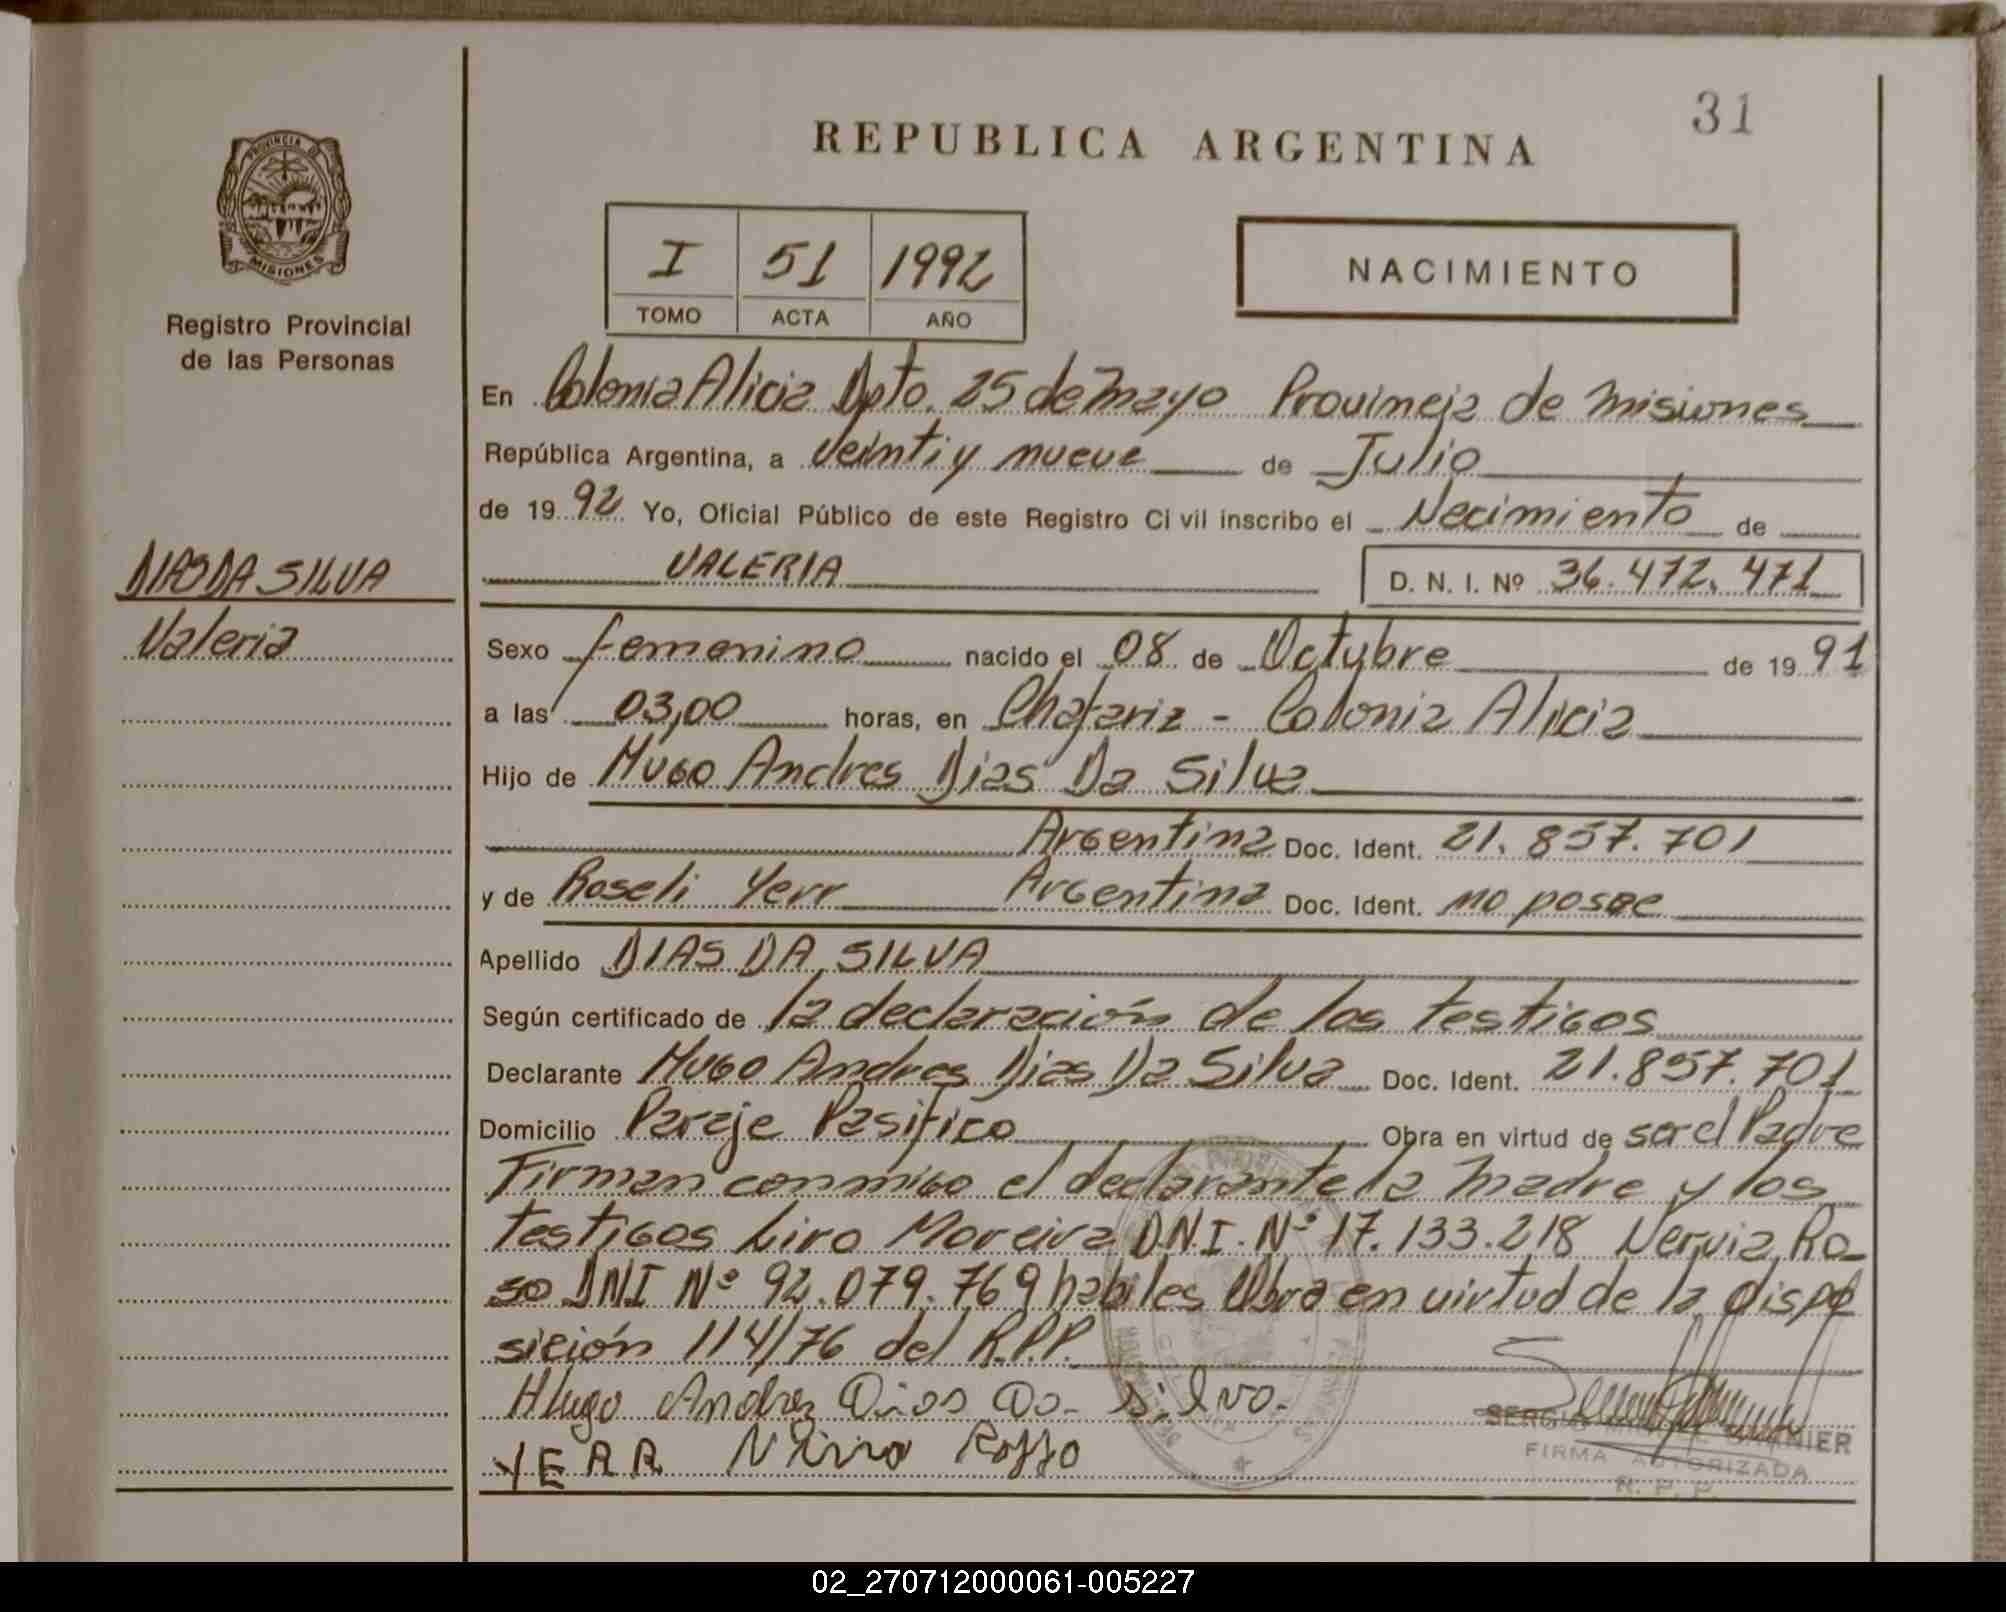 31
REPUBLICA ARGENTINA
PROVINCIA DE
MISIONES
Registro Provincial
de las Personas
I 51 1992
TOMO ACTA AÑO
NACIMIENTO
En Colonia Alicia Dpto. 25 de Mayo Provincia de Misiones
República Argentina, a veinti y nueve de Julio
de 1992 Yo, Oficial Público de este Registro Civil inscribo el Nacimiento de
VALERIA D. N. I. Nº 36.472.471
DIAS DA SILVA
Valeria
Sexo femenino nacido el 08 de Octubre de 1991
a las 03,00 horas, en Chafariz - Colonia Alicia
Hijo de Hugo Andres Dias Da Silva
Argentina Doc. Ident. 21.857.701
y de Roseli Yerr Argentina Doc. Ident. no posee
Apellido DIAS DA SILVA
Según certificado de la declaración de los testigos
Declarante Hugo Andres Dias Da Silva Doc. Ident. 21.857.701
Domicilio Paraje Pasifico Obra en virtud de ser el Padre
Firman conmigo el declarante la madre y los
testigos Liro Moreira D.N.I. Nº 17.133.218 Nervia Ro-
so DNI Nº 92.079.769 habiles Obra en virtud de la dispo
sición 114/76 del R.P.P.
Hugo Andres Dias Da Silva.
YERR Rosso
SERGIO
FIRMA AUTORIZADA
R. P. P.
02_270712000061-005227